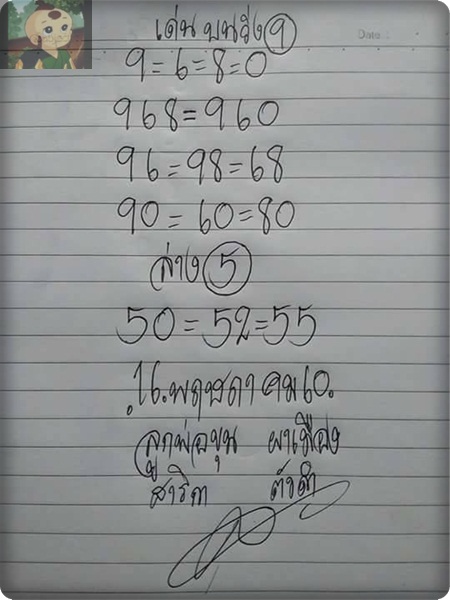 เด่น บนวิ่ง 9
Date :
9=6=8=0
968=960
96=98=68
90=60=80
ล่าง 5
50=52=55
16.พฤษภาคม60.
ลูกพ่อขุน ผาเมือง
สาริกา ตัวดำ